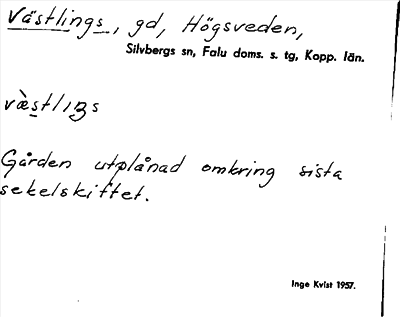 Västlings, gd, Högsveden,
Silvbergs sn, Falu doms. s. tg, Kopp. län.
væ̀stlıŋs
Gården utplånad omkring sista
sekelskiftet.
Inge Kvist 1957.